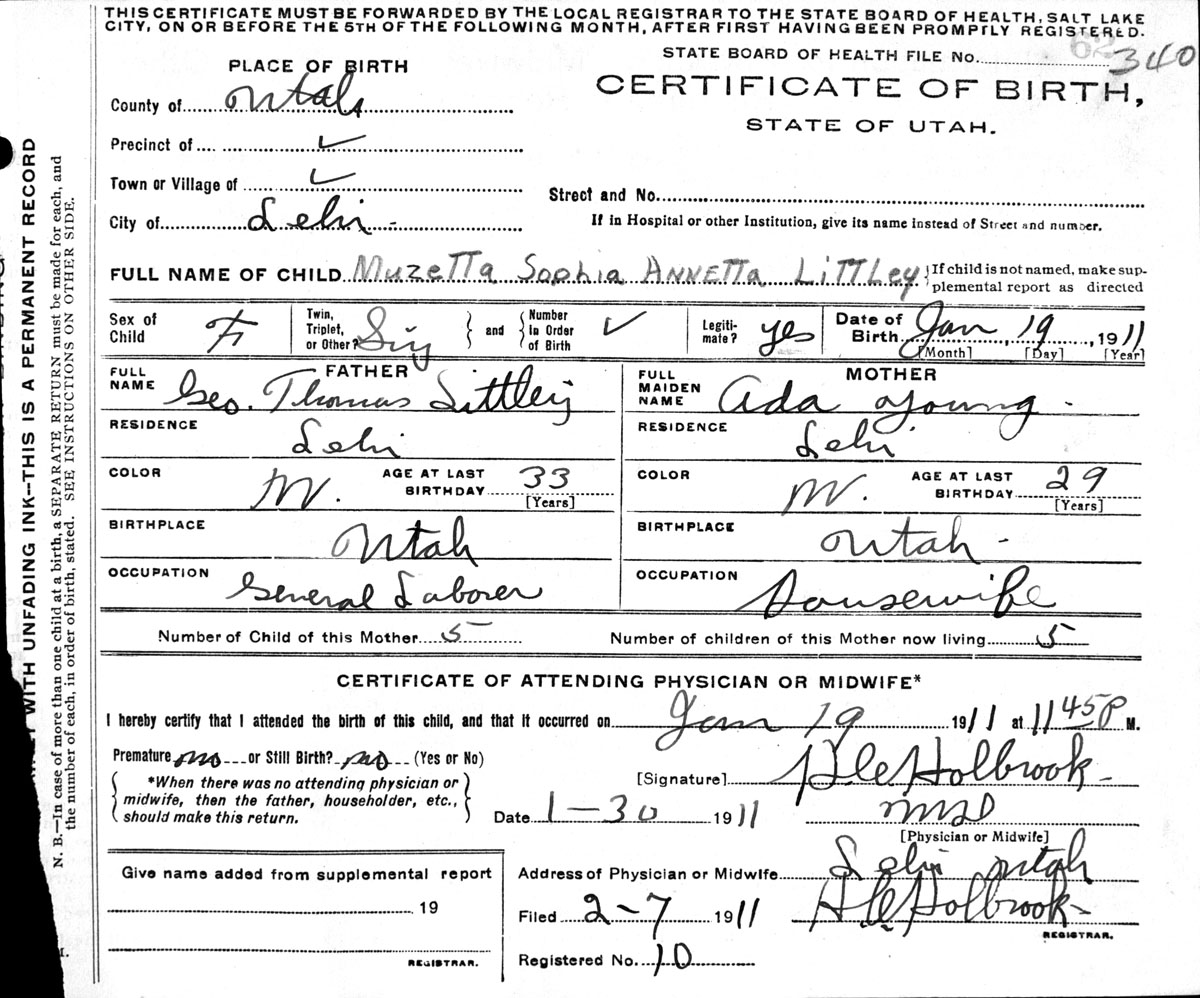 THIS CERTIFICATE MUST BE FORWARDED BY THE LOCAL REGISTRAR TO THE STATE BOARD OF HEALTH, SALT LAKE
CITY, ON OR BEFORE THE 5TH OF THE FOLLOWING MONTH, AFTER FIRST HAVING BEEN PROMPTLY REGISTERED.
62
STATE BOARD OF HEALTH FILE No. 340
PLACE OF BIRTH
CERTIFICATE OF BIRTH,
STATE OF UTAH.
County of Utah
Precinct of ✓
Town or Village of ✓
Street and No.
City of Lehi -
If in Hospital or other Institution, give its name instead of Street and number.
FULL NAME OF CHILD Muzetta Sophia Annetta Littley } If child is not named, make sup-
plemental report as directed
Sex of Child F Twin, Triplet, or Other? Sig } and { Number in Order of Birth ✓ Legiti-mate? yes Date of Birth Jan, 19, 1911
[Month] [Day] [Year]
FATHER
FULL NAME Geo. Thomas Littley
MOTHER
FULL MAIDEN NAME Ada Young -
RESIDENCE Lehi
RESIDENCE Lehi
COLOR W. AGE AT LAST BIRTHDAY 33 [Years]
COLOR W. AGE AT LAST BIRTHDAY 29 [Years]
BIRTHPLACE Utah
BIRTHPLACE Utah -
OCCUPATION General Laborer
OCCUPATION Housewife
Number of Child of this Mother 5 Number of children of this Mother now living 5
CERTIFICATE OF ATTENDING PHYSICIAN OR MIDWIFE*
I hereby certify that I attended the birth of this child, and that it occurred on Jan 19 1911 at 11 45 P M.
Premature no or Still Birth? no (Yes or No)
[Signature] Holbrook
*When there was no attending physician or
midwife, then the father, householder, etc.,
should make this return.
Date 1-30 1911
[Physician or Midwife]
Address of Physician or Midwife Lehi Utah
Give name added from supplemental report
19
REGISTRAR.
Filed 2-7 1911 Holbrook
REGISTRAR.
Registered No. 10
WITH UNFADING INK--THIS IS A PERMANENT RECORD
N. B.—In case of more than one child at a birth, a SEPARATE RETURN must be made for each, and
the number of each, in order of birth, stated. SEE INSTRUCTIONS ON OTHER SIDE.